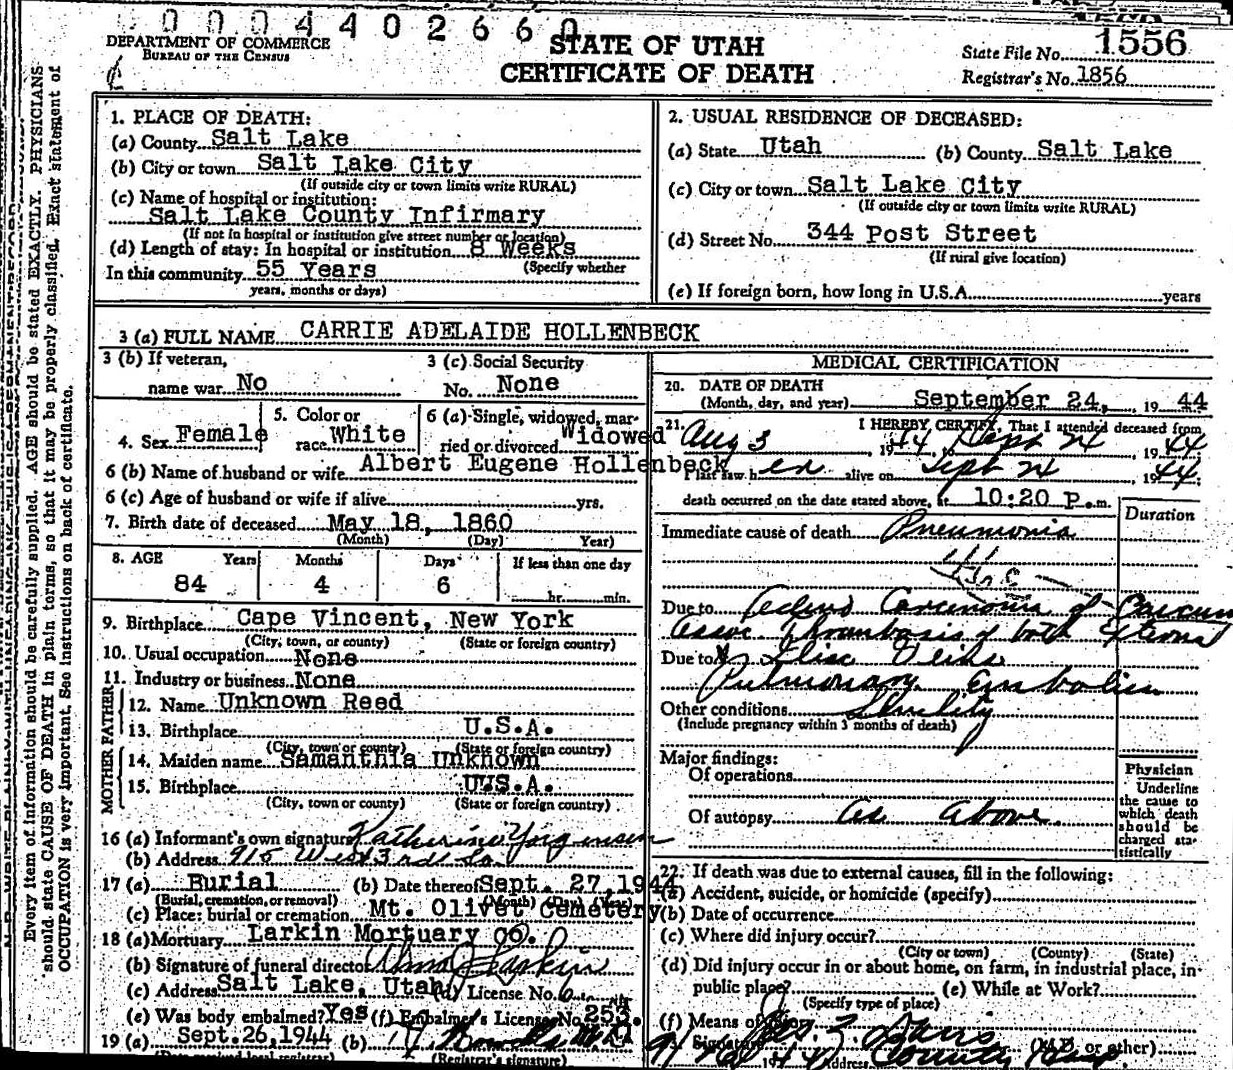 0004402660
DEPARTMENT OF COMMERCE
BUREAU OF THE CENSUS
STATE OF UTAH
CERTIFICATE OF DEATH
State File No. 1556
Registrar's No. 1856
Every item of information should be carefully supplied. AGE should be stated EXACTLY. PHYSICIANS
should state CAUSE OF DEATH in plain terms, so that it may be properly classified. Exact statement of
OCCUPATION is very important. See instructions on back of certificate.
1. PLACE OF DEATH:
(a) County Salt Lake
(b) City or town Salt Lake City
(If outside city or town limits write RURAL)
(c) Name of hospital or institution:
Salt Lake County Infirmary
(If not in hospital or institution give street number or location)
(d) Length of stay: In hospital or institution 8 Weeks
(Specify whether
In this community 55 Years
years, months or days)
2. USUAL RESIDENCE OF DECEASED:
(a) State Utah (b) County Salt Lake
(c) City or town Salt Lake City
(If outside city or town limits write RURAL)
(d) Street No. 344 Post Street
(If rural give location)
(e) If foreign born, how long in U.S.A. years
3 (a) FULL NAME CARRIE ADELAIDE HOLLENBECK
3 (b) If veteran, name war No
3 (c) Social Security No. None
4. Sex Female
5. Color or race White
6 (a) Single, widowed, married or divorced Widowed
6 (b) Name of husband or wife Albert Eugene Hollenbeck
6 (c) Age of husband or wife if alive yrs.
7. Birth date of deceased May 18, 1860
(Month) (Day) Year)
8. AGE Years Months Days If less than one day
84 4 6 hr. min.
9. Birthplace Cape Vincent, New York
(City, town, or county) (State or foreign country)
10. Usual occupation None
11. Industry or business None
FATHER
12. Name Unknown Reed
13. Birthplace U.S.A.
(City, town or county) (State or foreign country)
MOTHER
14. Maiden name Samanthia Unknown
15. Birthplace U.S.A.
(City, town or county) (State or foreign country)
16 (a) Informant's own signature Katherine Yorgensen
(b) Address 915 West 3rd So
17 (a) Burial (b) Date thereof Sept. 27, 1944
(Burial, cremation, or removal) (Month) (Day) (Year)
(c) Place: burial or cremation Mt. Olivet Cemetery
18 (a) Mortuary Larkin Mortuary Co.
(b) Signature of funeral director Larkin
(c) Address Salt Lake, Utah (d) License No. 6
(e) Was body embalmed? Yes (f) Embalmer's License No. 253.
19 (a) Sept. 26, 1944 (b)
(Registrar's signature)
MEDICAL CERTIFICATION
20. DATE OF DEATH
(Month, day, and year) September 24, 1944
21. I HEREBY CERTIFY, That I attended deceased from
Aug 3 1944, to Sept 24, 1944
I last saw h er alive on Sept 24, 1944;
death occurred on the date stated above, at 10:20 P.m.
Duration
Immediate cause of death Pneumonia
Due to Carcinoma of
Assoc. Thrombosis of both
Due to Iliac Veins
Pulmonary Embolism
Other conditions Senility
(Include pregnancy within 3 months of death)
Major findings:
Of operations
Of autopsy as above
Physician
Underline
the cause to
which death
should be
charged statistically
22. If death was due to external causes, fill in the following:
(a) Accident, suicide, or homicide (specify)
(b) Date of occurrence
(c) Where did injury occur?
(City or town) (County) (State)
(d) Did injury occur in or about home, on farm, in industrial place, in public place?
(e) While at Work?
(Specify type of place)
(f) Means of
Signature (M.D. or other)
Address County